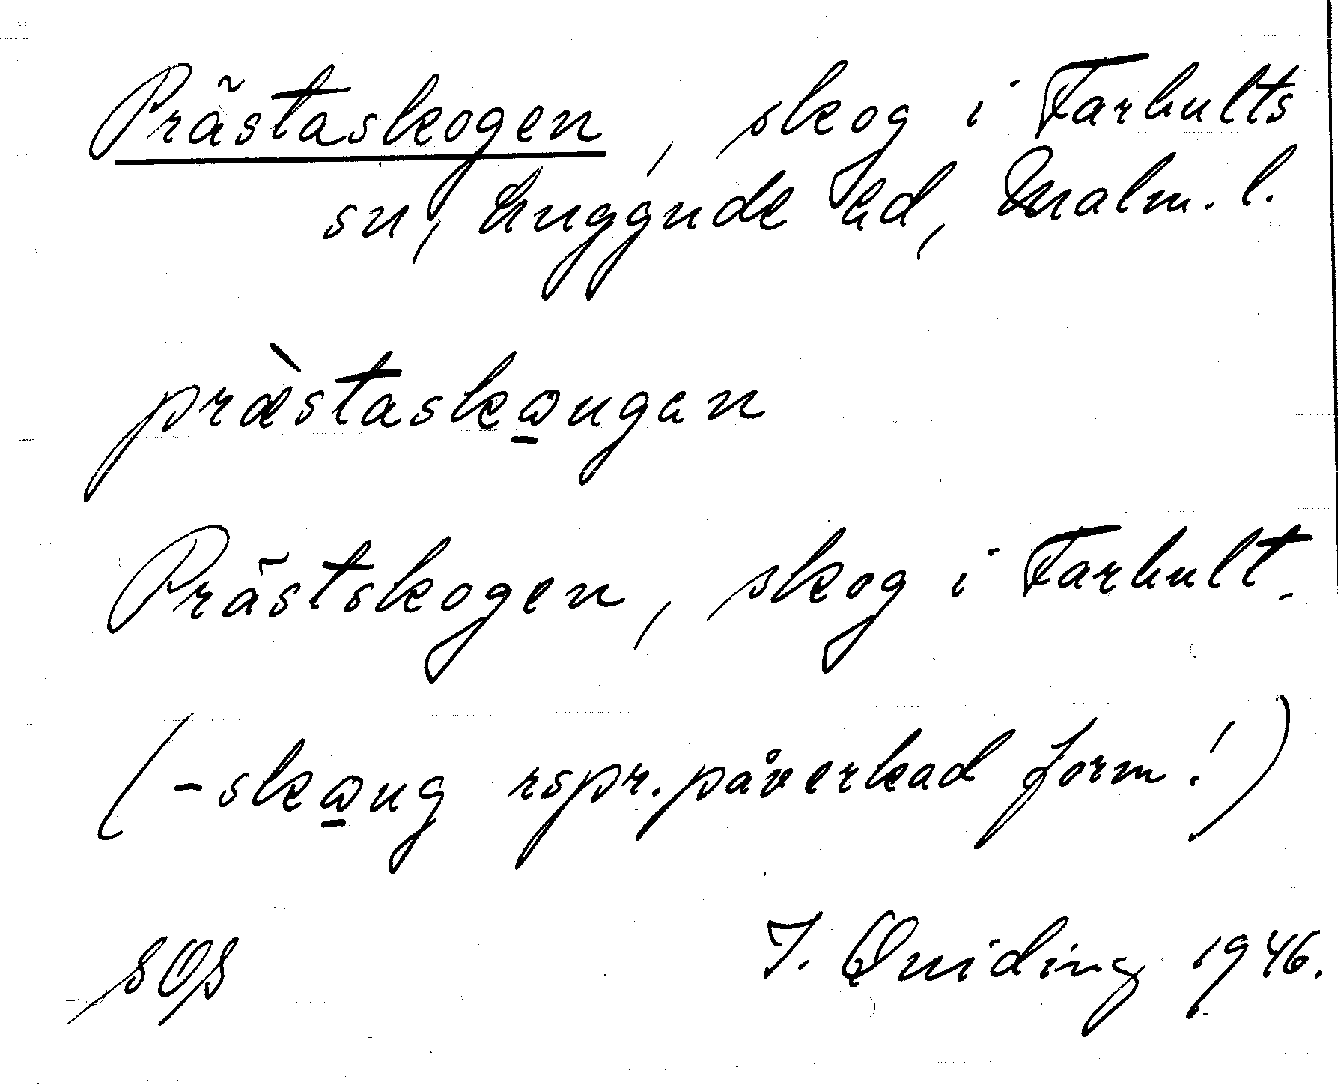 Prästaskogen, skog i Farhults
sn, Luggude hd, Malm. l.
præ̀staskɷ̱ugan
Prästskogen, skog i Farhult.
(-skɷ̱ug rspr. påverkad form!)
SOS I. Quiding 1946.